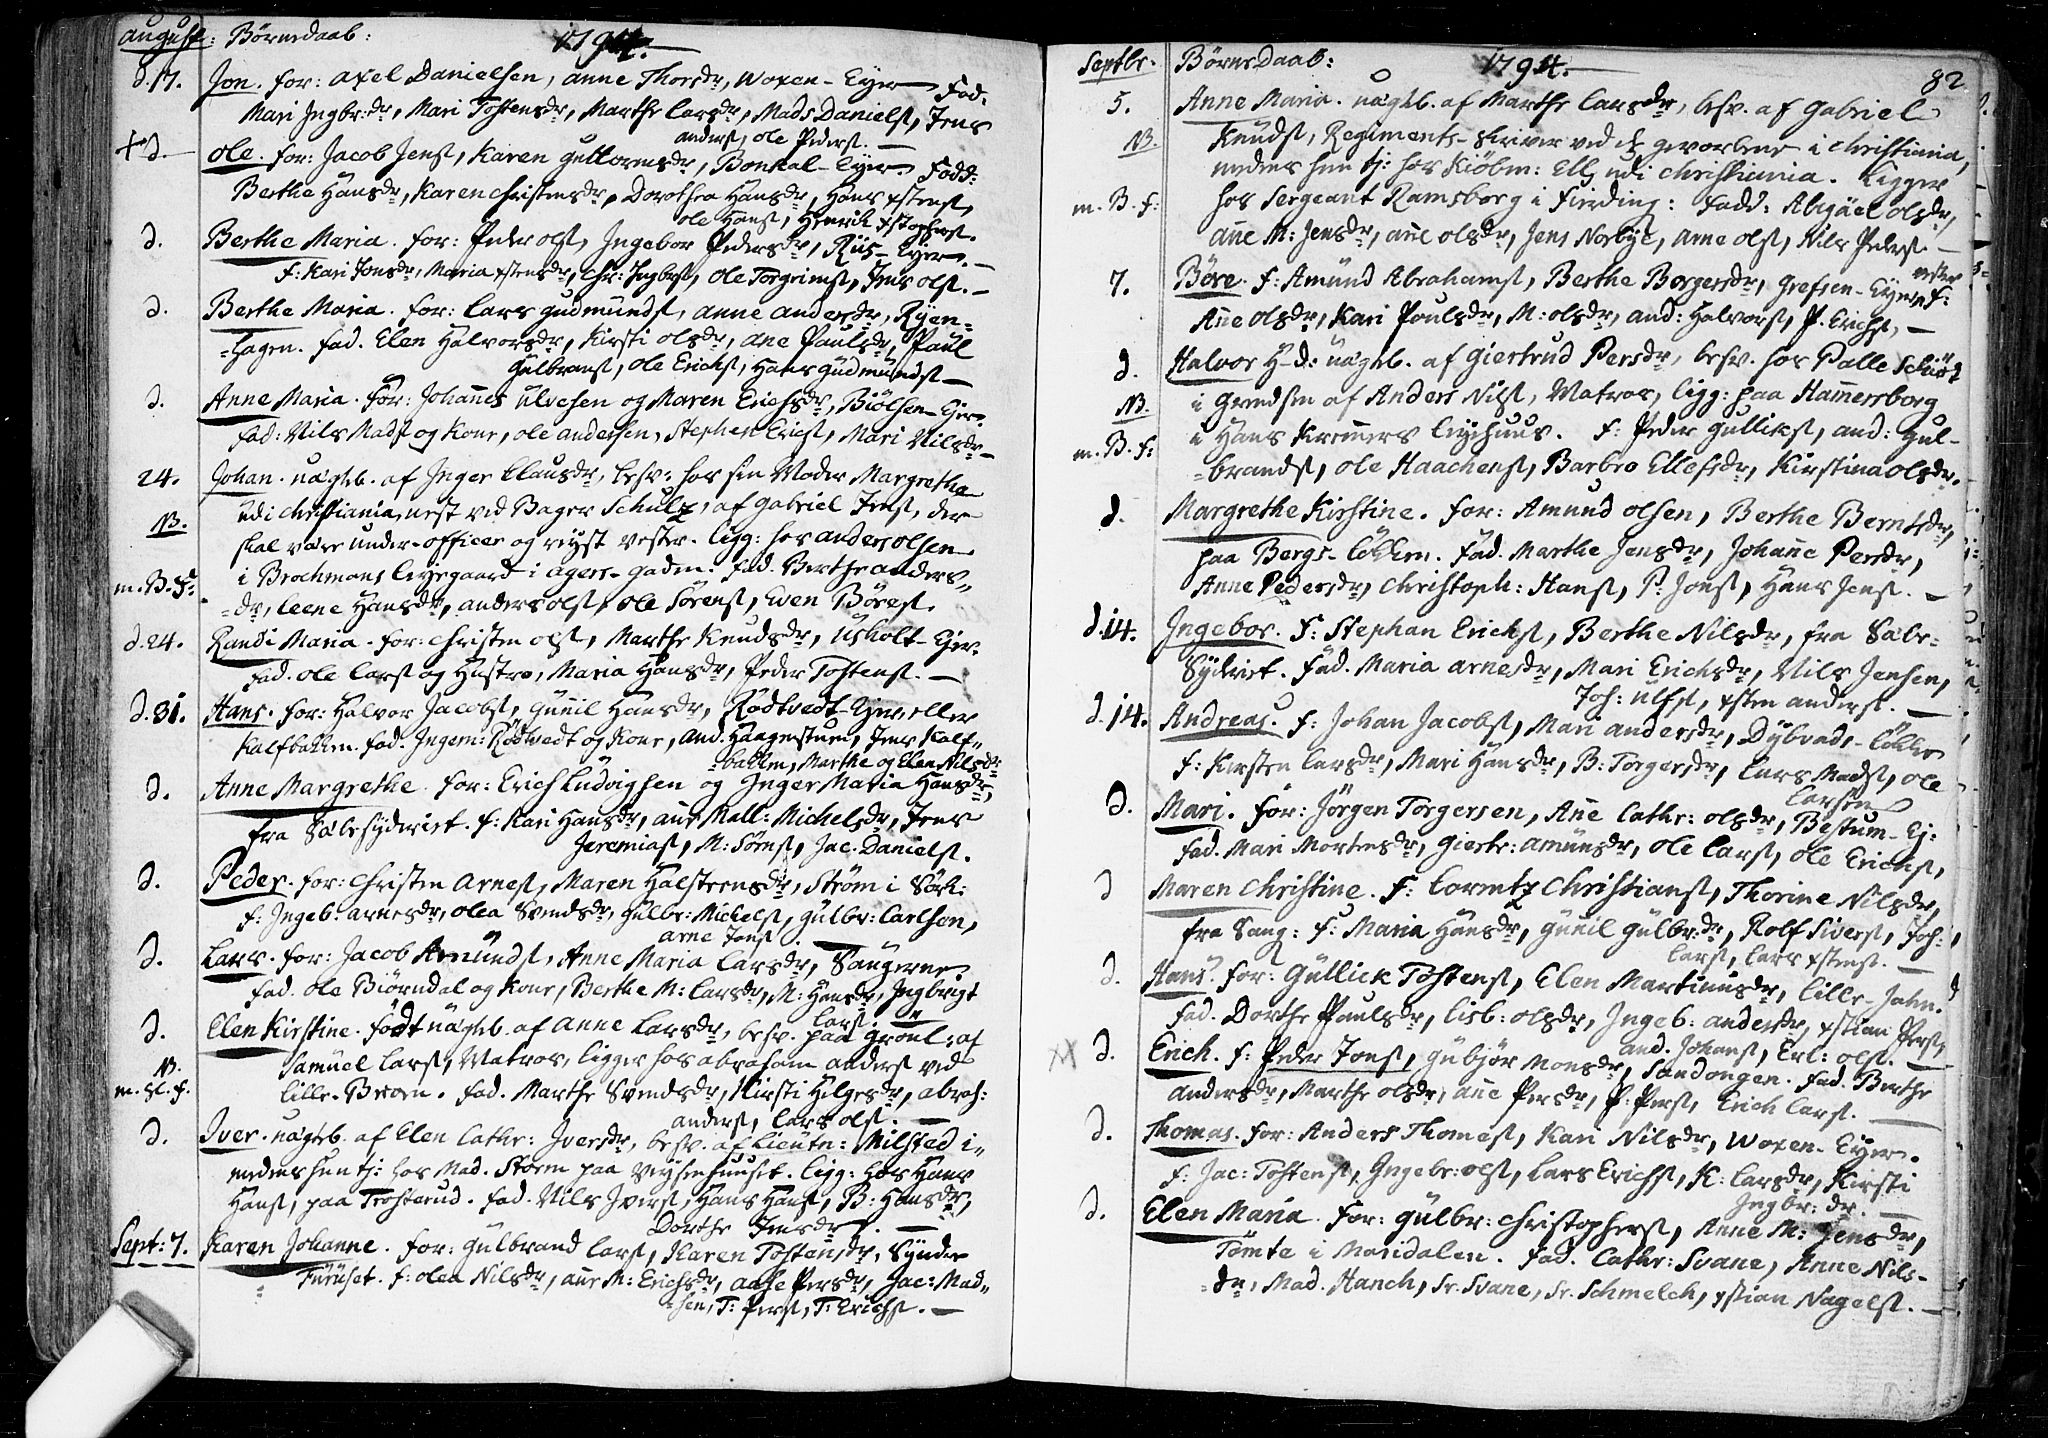 August: Børnedaab: 1794.
d. 17. Jon. For: Axel Danielsen, Anne Thorsdr, Woxen-Eyer Fad.
Mari Ingbr:dr, Mari Tostensdr, Marthe Larsdr, Mads Danielss, Jens
Anderss, Ole Pederss.
d. Ole. For: Jacob Jenss, Karen Guttormsdr, Bonkal-Eyer Fadd:
Berthe Hansdr, Karen Christensdr, Dorothea Hansdr, Hans xstenss,
Ole Hanss, Henrik xstophers.
d. Berthe Maria. For: Peder Olss, Ingebor Pedersdr, Riis-Eyer.
F: Kari Jonsdr, Maria xstensdr, Chr: Ingbrss, Ole Torgrimss, Jens Olss.
d. Berthe Maria. For: Lars Gudmundss, Anne Andersdr, Ryen-
hagen. Fad. Elen Halvorsdr, Kirsti Olsdr, Ane Paulsdr, Paul
Gulbranss, Ole Erichss, Hans Gudmundss
d. Anne Maria. For: Johannes Ulvesen og Maren Erichsdr, Biølsen-Eyer.
Fad: Nils Madss og Kone, Ole Andersen, Stephen Ericss, Mari Nilsdr
24. Johan. uægtb. af Inger Clausdr, besv: hos sin Moder Margrethe
NB. udi Christiania, nest ved Bager Schultz, af Gabriel Jenss, der
skal være Under-officer og reyst vester. ligg: hos Anders Olsen
m. B. F. i Brochmans Leyegaard i Agers-gaden. Fad. Berthe Anders-
dr, Leene Hansdr, Anders Olss, Ole Sørenss, Even Børess.
d. 24. Randi Maria. For: Christen Olss, Marthe Knudsdr, Uskolt-Eyer.
Fad. Ole Larss og Hustro, Maria Hansdr, Peder Tostenss.
d. 31. Hans. For: Halvor Jacobss, Guneil Hansdr, Rødtvedt-Eyer, eller
Kalfbakken. Fad. Ingem: Rødtvedt og Kone, And. Haagenstuen, Jens Kalf-
bakken, Marthe og Elen Nilsdr
d. Anne Margrethe. For: Erich Ludvigsen og Inger Maria Hansdr,
fra Sabesydvest. F: Kari Hansdr, Anne Mall: Michelsdr, Jens
Jeremiass, M: Sørnss, Jac. Danielss.
d. Peder. For: Christen Arness, Maren Halsteensdr, Strøm i Sørk:
F: Ingeb: Arnesdr, Olea Svendsdr, Gulbr: Michelss, Gulbr: Carlson,
Arne Jonss.
d. Lars. For: Jacob Amundss, Anne Maria Larsdr, Saugerne.
Fad. Ole Biørndal og Kone, Berthe M: Larsdr, M: Hansdr, Ingbrigt
Larss.
d. Elen Kirstine. Født uægtb. af Anne Larsdr, besv. paa Grønl: af
NB. Samuel Larss, Matros, ligger hos Abraham Anderss ved
m. Sl. F. lille-Broen. Fad. Marthe Svendsdr, Kirsti Hilgesdr, Abrah:
Anderss, Lars Olss.
d. Iver. uægtb. af Elen Cathr: Iversdr, besv. af Lieutn: Milsted i-
medens hun tj: hos Mad. Storm paa Veysenhuuset. ligg: hos Hans
Hanss, paa Trosterud. Fad. Nils Iverss, Hans Hanss, B: Hansdr,
Dorthe Jensdr.
Sept: 7. Karen Johanne. For: Gulbrand Larss, Karen Tostensdr, Syndre
Furuset. F: Olea Nilsdr, Anne M: Erichsdr, Aase Persdr, Jac: Mad-
sen, T: Perss, T: Erichss.
Septbr. Børnedaab: 1794. 82
5. Anne Maria. uægtb. af Marthe Larsdr, besv. af Gabriel
NB. Knudss, Regiments-skriver ved de gevorbene i Christiania,
medens hun tj: hos Kiøbm: Elb udi Christiania. Ligger
m. B. F: hos Sergeant Ramsborg i Fierding: Fadd: Abigael Olsdr,
Anne M: Jensdr, Anne Olsdr, Jens Norbye, Arne Olss, Nils Pederss.
7. Børe. F: Amund Abrahamss, Berthe Borgersdr, Grefsen-Eyer F:
Anne Olsdr, Kari Poulsdr, M: Olsdr, And: Halvorss, P. Erichss,
d. Halvor H-d: uægtb. af Giertrud Persdr, besv. hos Palle Schiødt
NB. i Grendsen af Anders Nilss, Matros, ligg: paa Hamersborg
m. B. F: i Hans Kremmers Leyehuus. F: Peder Gullikss, And: Gul-
brandss, Ole Haachenss, Barbro Ellefsdr, Kirstina Olsdr.
d. Margrethe Kirstine. For: Amund Olsen, Berthe Berntsdr,
paa Bergs-Løkken. Fad. Marthe Jensdr, Johanne Persdr,
Anne Pedersdr, Christoph: Hanss, P: Jonss, Hans Jenss.
d. 14. Ingebor. F: Stephan Erichss, Berthe Nilsdr, fra Sabe-
Sydvest. Fad. Maria Arnesdr, Mari Erichsdr, Nils Jensen,
Joh: Ulfss, xsten Anderss.
d. 14. Andreas. F: Johan Jacobss, Mari Andersdr, Dybvads-Løkke
F: Kirsten Larsdr, Mari Hansdr, B: Torgersdr, Lars Madss, Ole
Larsen
d. Mari. For: Jørgen Torgersen, Anne Cathr: Olsdr, Bestum-Ej:
Fad. Mari Mortensdr, Giertr: Amunsdr, Ole Larss, Ole Erichss,
d Maren Christine. F: Lorentz Christianss, Thorine Nilsdr,
fra Saug: F: Maria Hansdr, Guneil Gulbr:dr, Rolf Siverss, Joh:
Larss, Lars xstenss.
d. Hans. For: Gullick Tostenss, Elen Martinusdr, Lille-Jahn.
Fad. Dorthe Paulsdr, Lisb: Olsdr, Ingeb: Andersdr, xstian Perss,
And. Johanss, Erl: Olss.
d. Erich. F: Peder Jonss, Gubjør Monsdr, Sandongen. Fad. Berthe
Andersdr, Marthe Olsdr, Anne Persdr, P: Perss, Erich Larss.
d. Thomas. For: Anders Thomess, Kari Nilsdr, Woxen-Eyer.
F: Jac: Tostenss, Ingebr: Olss, Lars Erichss, K: Larsdr, Kirsti
Ingbr: dr.
d. Elen Maria. For: Gulbr: Christopherss, Anne M: Jensdr,
Tømte i Maridalen. Fad. Cathr: Svane, Anne Nils-
dr, Mad. Hanch, Sr. Svane, Sr. Schmelch, xstian Nagelss.